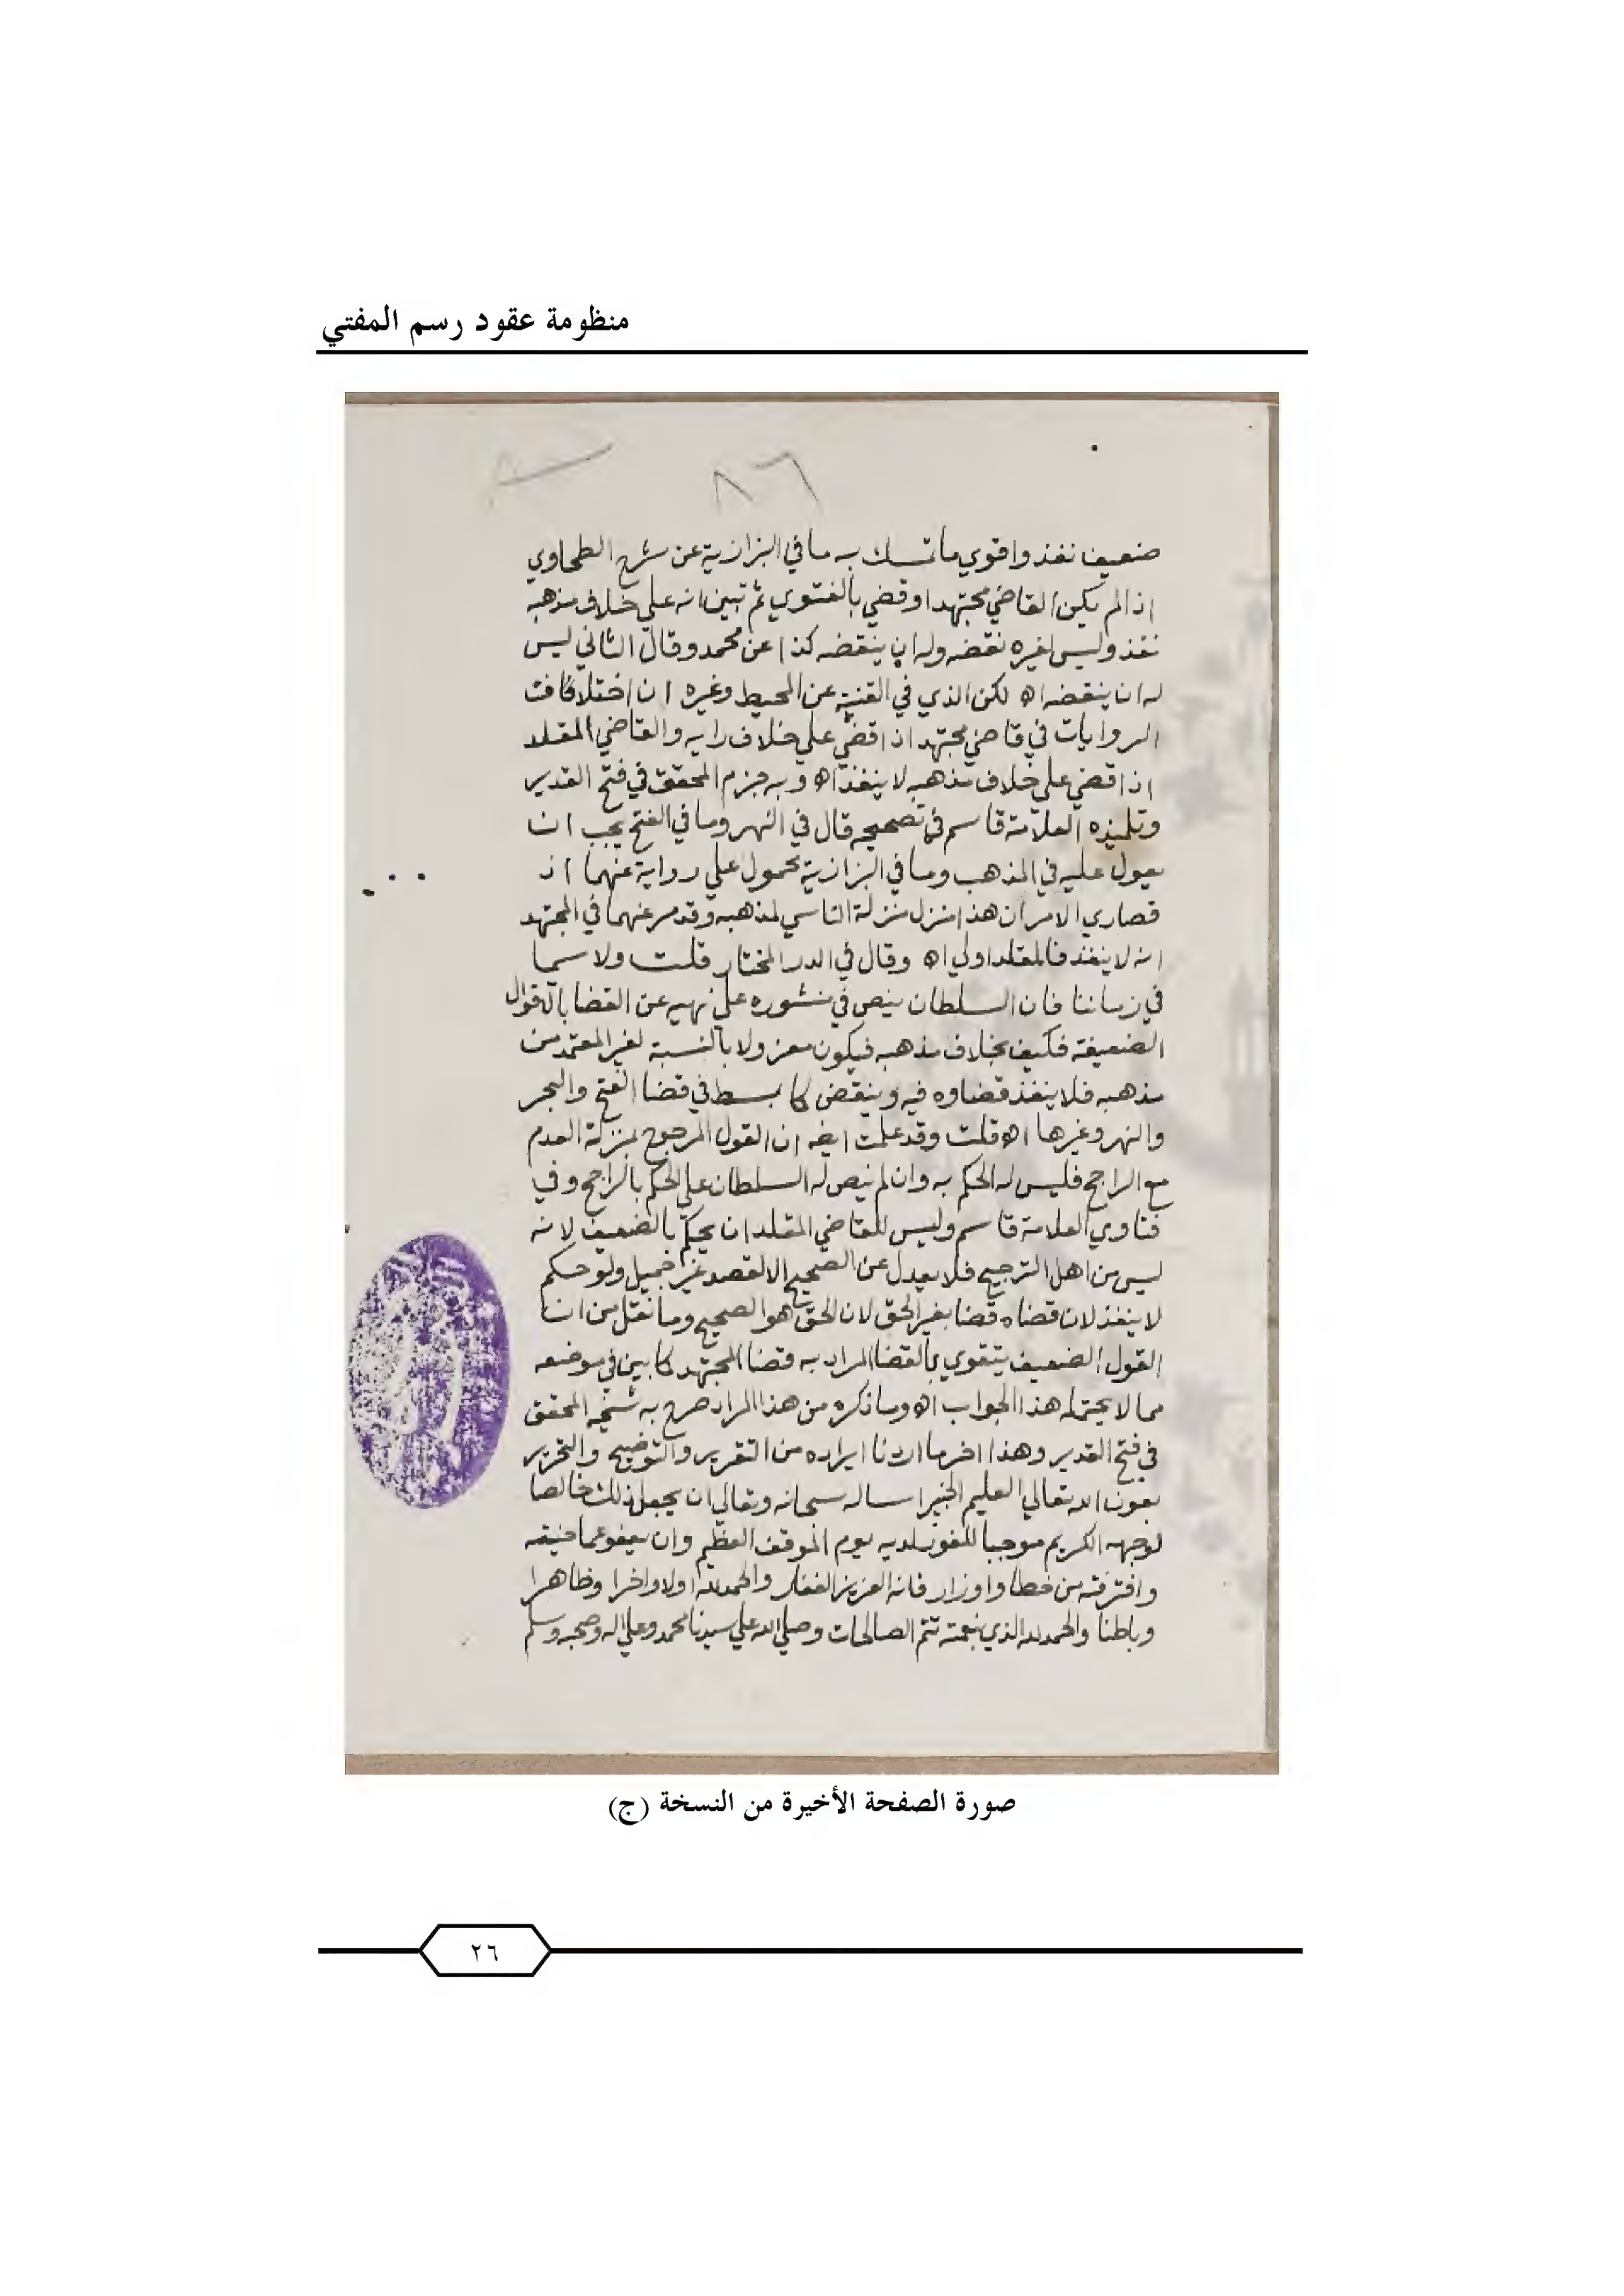 منظومة عقود رسم المفتي
٨٦
ضعيف نفذ واقوي ما تمسك به ما في البزازية عن شرح الطحاوي
اذا لم يكن القاضي مجتهدا وقضي بالفتوي ثم تبين انه علي خلاف مذهبه
نفذ وليس لغيره نقضه وله ان ينقضه كذا عن محمد وقال الثاني ليس
له ان ينقضه اه لكن الذي في القنية عن المحيط وغيره ان اختلافات
الروايات في قاضي مجتهد اذا قضي علي خلاف رايه والقاضي المقلد
اذا قضي علي خلاف مذهبه لا ينفذ اه وبه جزم المحقق في فتح القدير
وتلميذه العلامة قاسم في تصحيحه قال في النهر وما في الفتح يجب ان
يعول عليه في المذهب وما في البزازية محمول علي رواية عنهما اذ
قصاري الامر ان هذا منزل منزلة الناسي لمذهبه وقد مر عنهما في المجتهد
انه لا ينفذ فالمقلد اولي اه وقال في الدر المختار قلت ولا سيما
في زماننا فان السلطان ينص في منشوره علي نهيه عن القضا بالاقوال
الضعيفة فكيف بخلاف مذهبه فيكون معزولا بالنسبة لغير المعتمد من
مذهبه فلا ينفذ قضاوه فيه وينقض كما بسط في قضا الفتح والبحر
والنهر وغيرها اه قلت وقد علمت ايضه ان القول المرجوح بمنزلة العدم
مع الراجح فليس له الحكم به وان لم ينص له السلطان علي الحكم بالراجح وفي
فتاوي العلامة قاسم وليس للقاضي المقلد ان يحكم بالضعيف لانه
ليس من اهل الترجيح فلا يعدل عن الصحيح الا لقصد غير جميل ولو حكم
لا ينفذ لان قضاه قضا بغير الحق لان الحق هو الصحيح وما نقل من ان
القول الضعيف يتقوي بالقضا المراد به قضا المجتهد كما بين في موضعه
مما لا يحتمله هذا الجواب اه وما ذكره من هذا المراد صرح به شيخه المحقق
في فتح القدير وهذا اخر ما اردنا ايراده من التقرير والتوضيح والتحرير
بعون الله تعالي العليم الخبير اساله سبحانه وتعالي ان يجعل ذلك خالصا
لوجهه الكريم موجبا للفوز لديه يوم الموقف العظيم وان يعفو عما جنيته
واقترفته من خطا واوزار فانه العزيز الغفار والحمد لله اولا واخرا وظاهرا
وباطنا والحمد لله الذي بنعمته تتم الصالحات وصلي الله علي سيدنا محمد وعلي اله وصحبه وسلم
صورة الصفحة الأخيرة من النسخة (ج)
٢٦